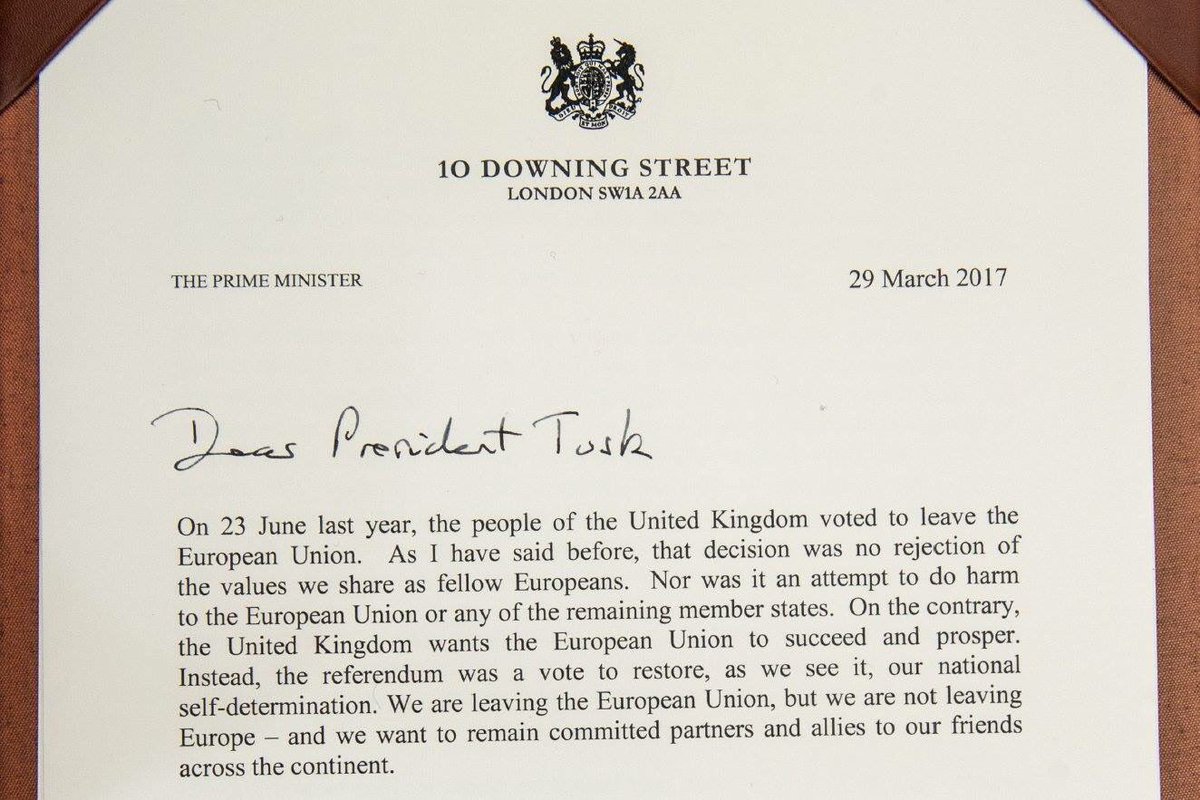 10 DOWNING STREET
LONDON SW1A 2AA
THE PRIME MINISTER
29 March 2017
Dear President Tusk
On 23 June last year, the people of the United Kingdom voted to leave the
European Union. As I have said before, that decision was no rejection of
the values we share as fellow Europeans. Nor was it an attempt to do harm
to the European Union or any of the remaining member states. On the contrary,
the United Kingdom wants the European Union to succeed and prosper.
Instead, the referendum was a vote to restore, as we see it, our national
self-determination. We are leaving the European Union, but we are not leaving
Europe – and we want to remain committed partners and allies to our friends
across the continent.